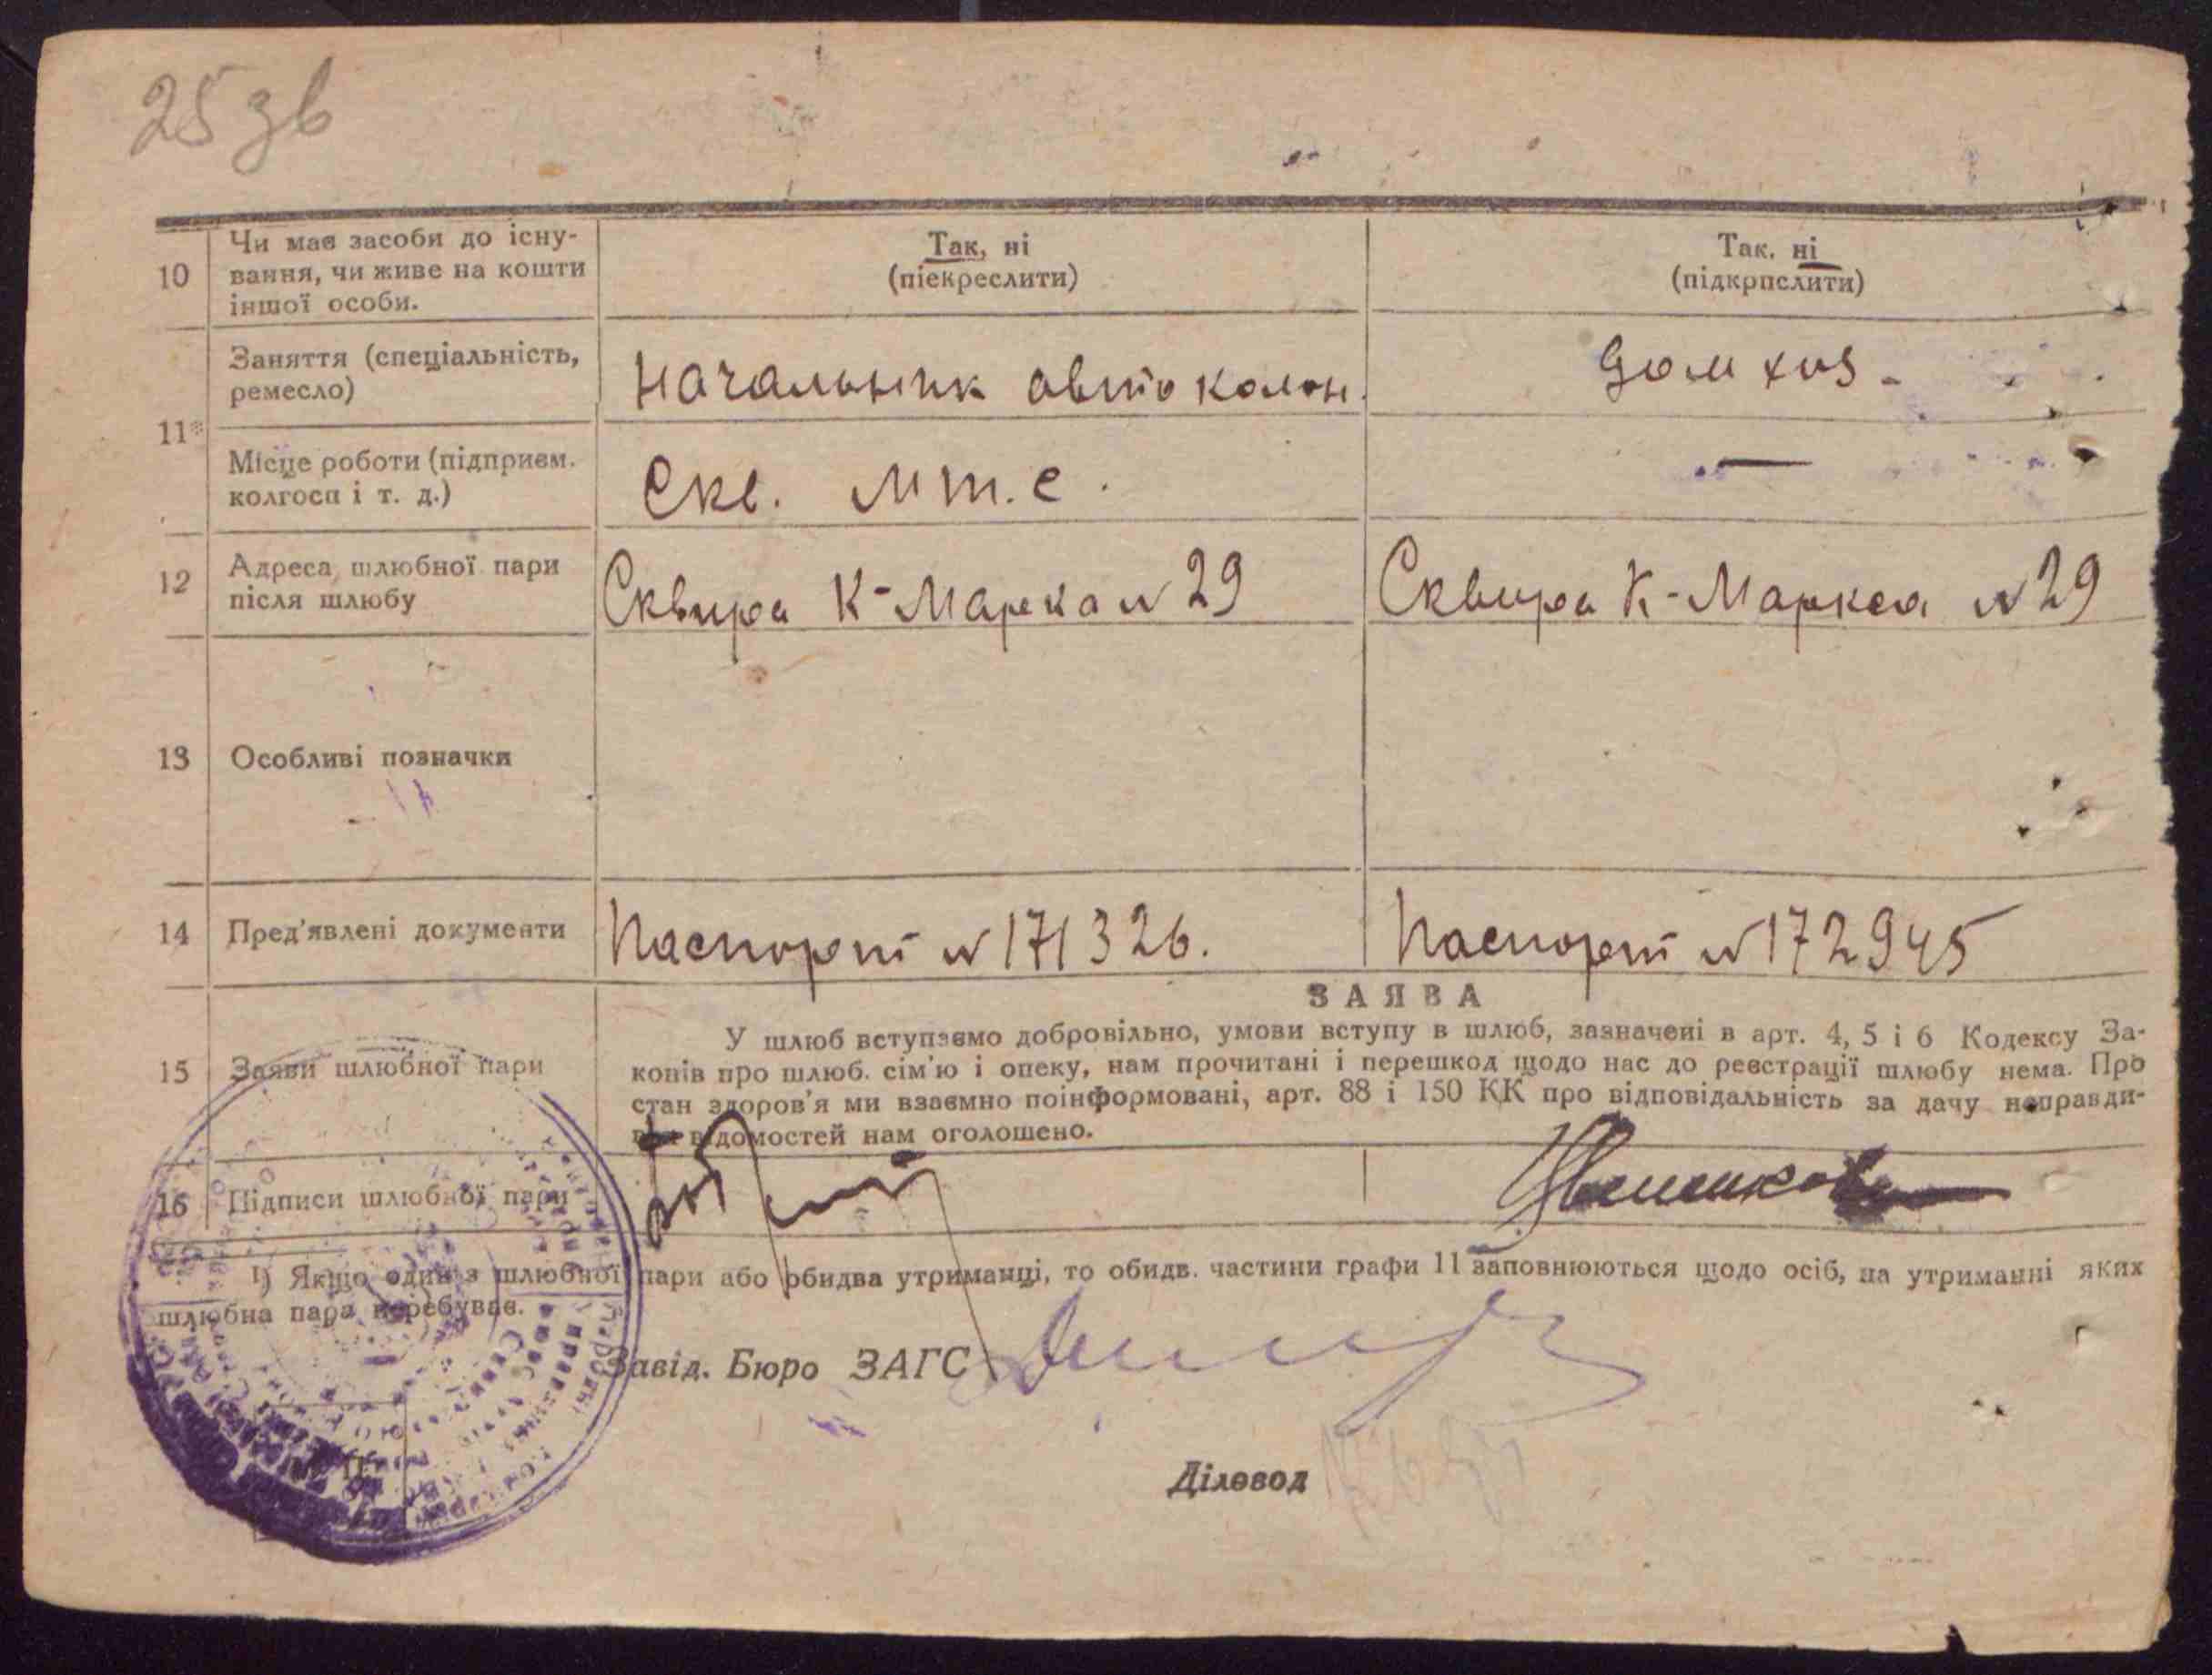 25 зв
10
Чи має засоби до існу-
вання, чи живе на кошти
іншої особи.
Так, ні
(піекреслити)
Так, ні
(підкрпслити)
11*
Заняття (спеціальність,
ремесло)
Начальник авто колон.
Дом хоз -
Місце роботи (підприєм.
колгосп і т. д.)
Скв. М т. с.
—
12
Адреса шлюбної пари
після шлюбу
Сквира К-Маркса N 29
Сквира К-Маркса N 29
13
Особливі позначки
14
Пред'явлені документи
Паспорт N 171326.
Паспорт N 172945
ЗАЯВА
15
Заяви шлюбної пари
У шлюб вступаємо добровільно, умови вступу в шлюб, зазначені в арт. 4, 5 і 6 Кодексу За-
конів про шлюб. сім'ю і опеку, нам прочитані і перешкод щодо нас до реєстрації шлюбу нема. Про
стан здоров'я ми взаємно поінформовані, арт. 88 і 150 КК про відповідальність за дачу неправди-
відомостей нам оголошено.
16
Підписи шлюбної пари
¹) Якщо один з шлюбної пари або обидва утриманці, то обидв. частини графи 11 заповнюються щодо осіб, на утриманні яких
шлюбна пара перебуває.
Завід. Бюро ЗАГС
Діловод